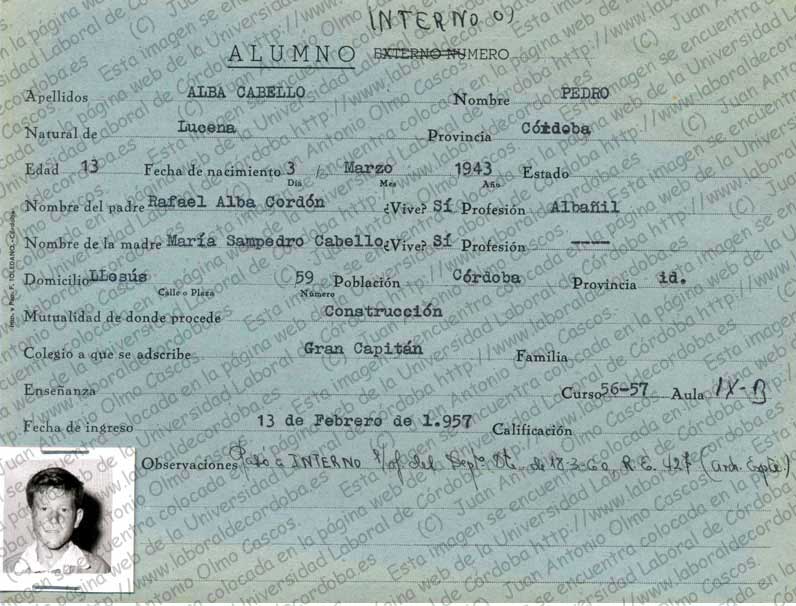 INTERNO
ALUMNO EXTERNO NUMERO
Apellidos ALBA CABELLO Nombre PEDRO
Natural de Lucena Provincia Córdoba
Edad 13 Fecha de nacimiento 3 / Marzo 1943 Estado
Día Mes Año
Nombre del padre Rafael Alba Cordón ¿Vive? Sí Profesión Albañil
Nombre de la madre María Sampedro Cabello ¿Vive? Sí Profesión ----
Domicilio LLosús 59 Población Córdoba Provincia id.
Calle o Plaza Número
Mutualidad de donde procede Construcción
Colegio a que se adscribe Gran Capitán Familia
Enseñanza Curso 56-57 Aula IX-B
Fecha de ingreso 13 de Febrero de 1.957 Calificación
Observaciones Paso a INTERNO s/of. del Deptº de 18-3-60, R.E. 427
Imp. y Pap. F. TOLEDANO.-Córdoba
(C) Juan Antonio Olmo Cascos. Esta imagen se encuentra colocada en la página web de la Universidad Laboral de Córdoba http://www.laboraldecordoba.es